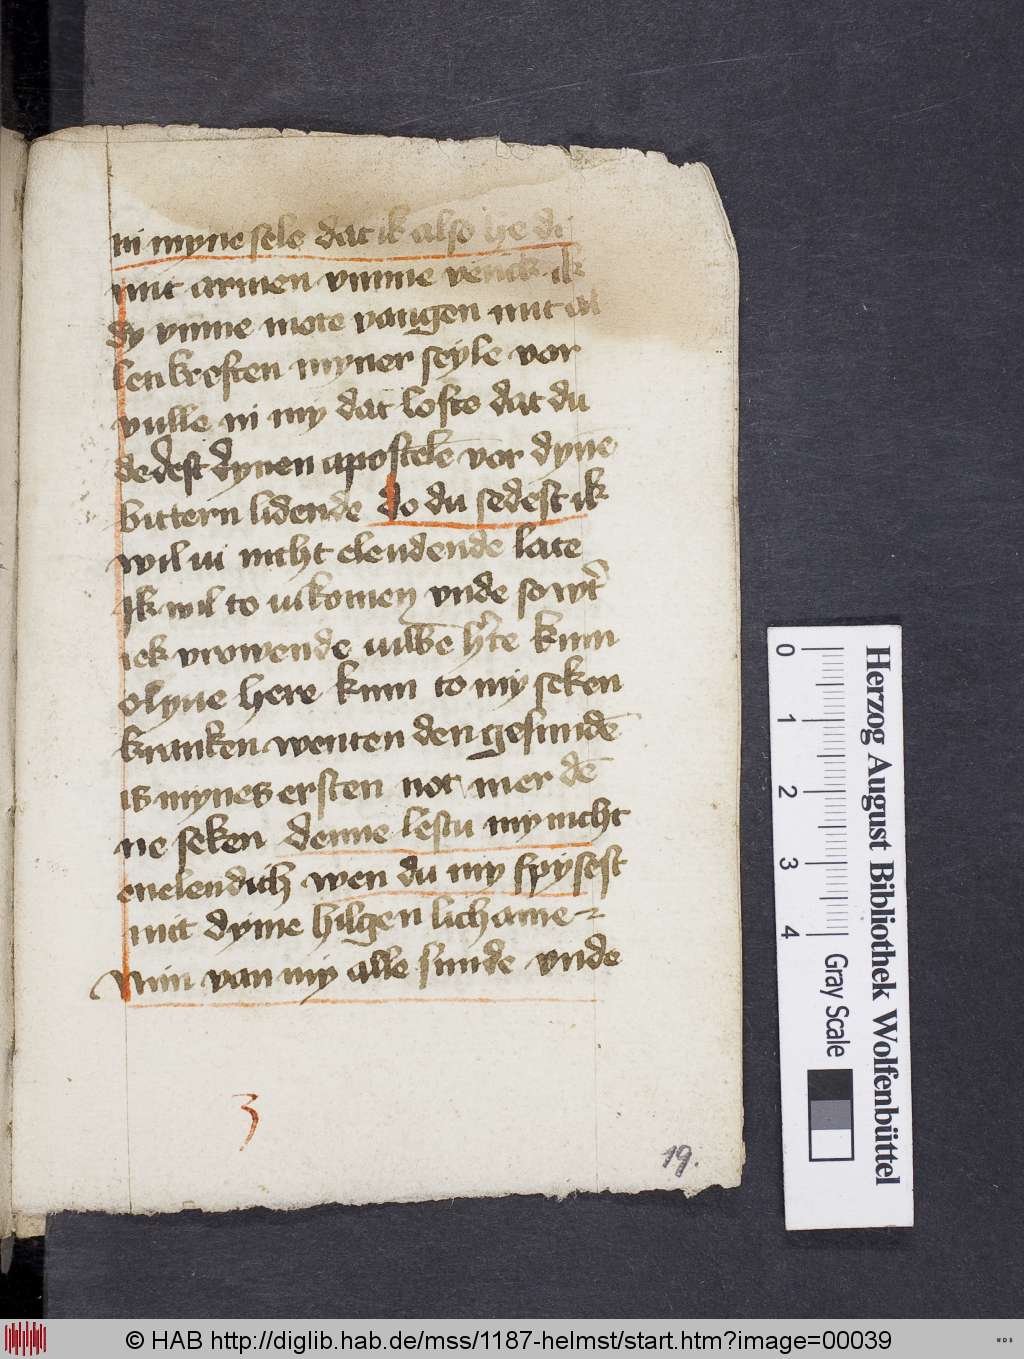 in myne sele dat ik also he di
mit armen vnme venck ik
dy vnme mote vangen mit al
len kreften myner seyle vor
vulle in my dat lofte dat du
dedest dynen apostelē vor dynē
bittern lidende do du sedest ik
wil iu nicht elendende late
Ik wil to iu komen vnde so wt
iek vrowende iuwe hte kum
o lyue here kum to my seken
kranken wenten den gesundē
is mynes ersten not mer dē
ne seken denne lestu my nicht
enelendich wen du my spysest
mit dyme hilgen lichame
Nim van my alle sunde vnde
3
19.
Herzog August Bibliothek Wolfenbüttel
0 1 2 3 4 Gray Scale
© HAB http://diglib.hab.de/mss/1187-helmst/start.htm?image=00039